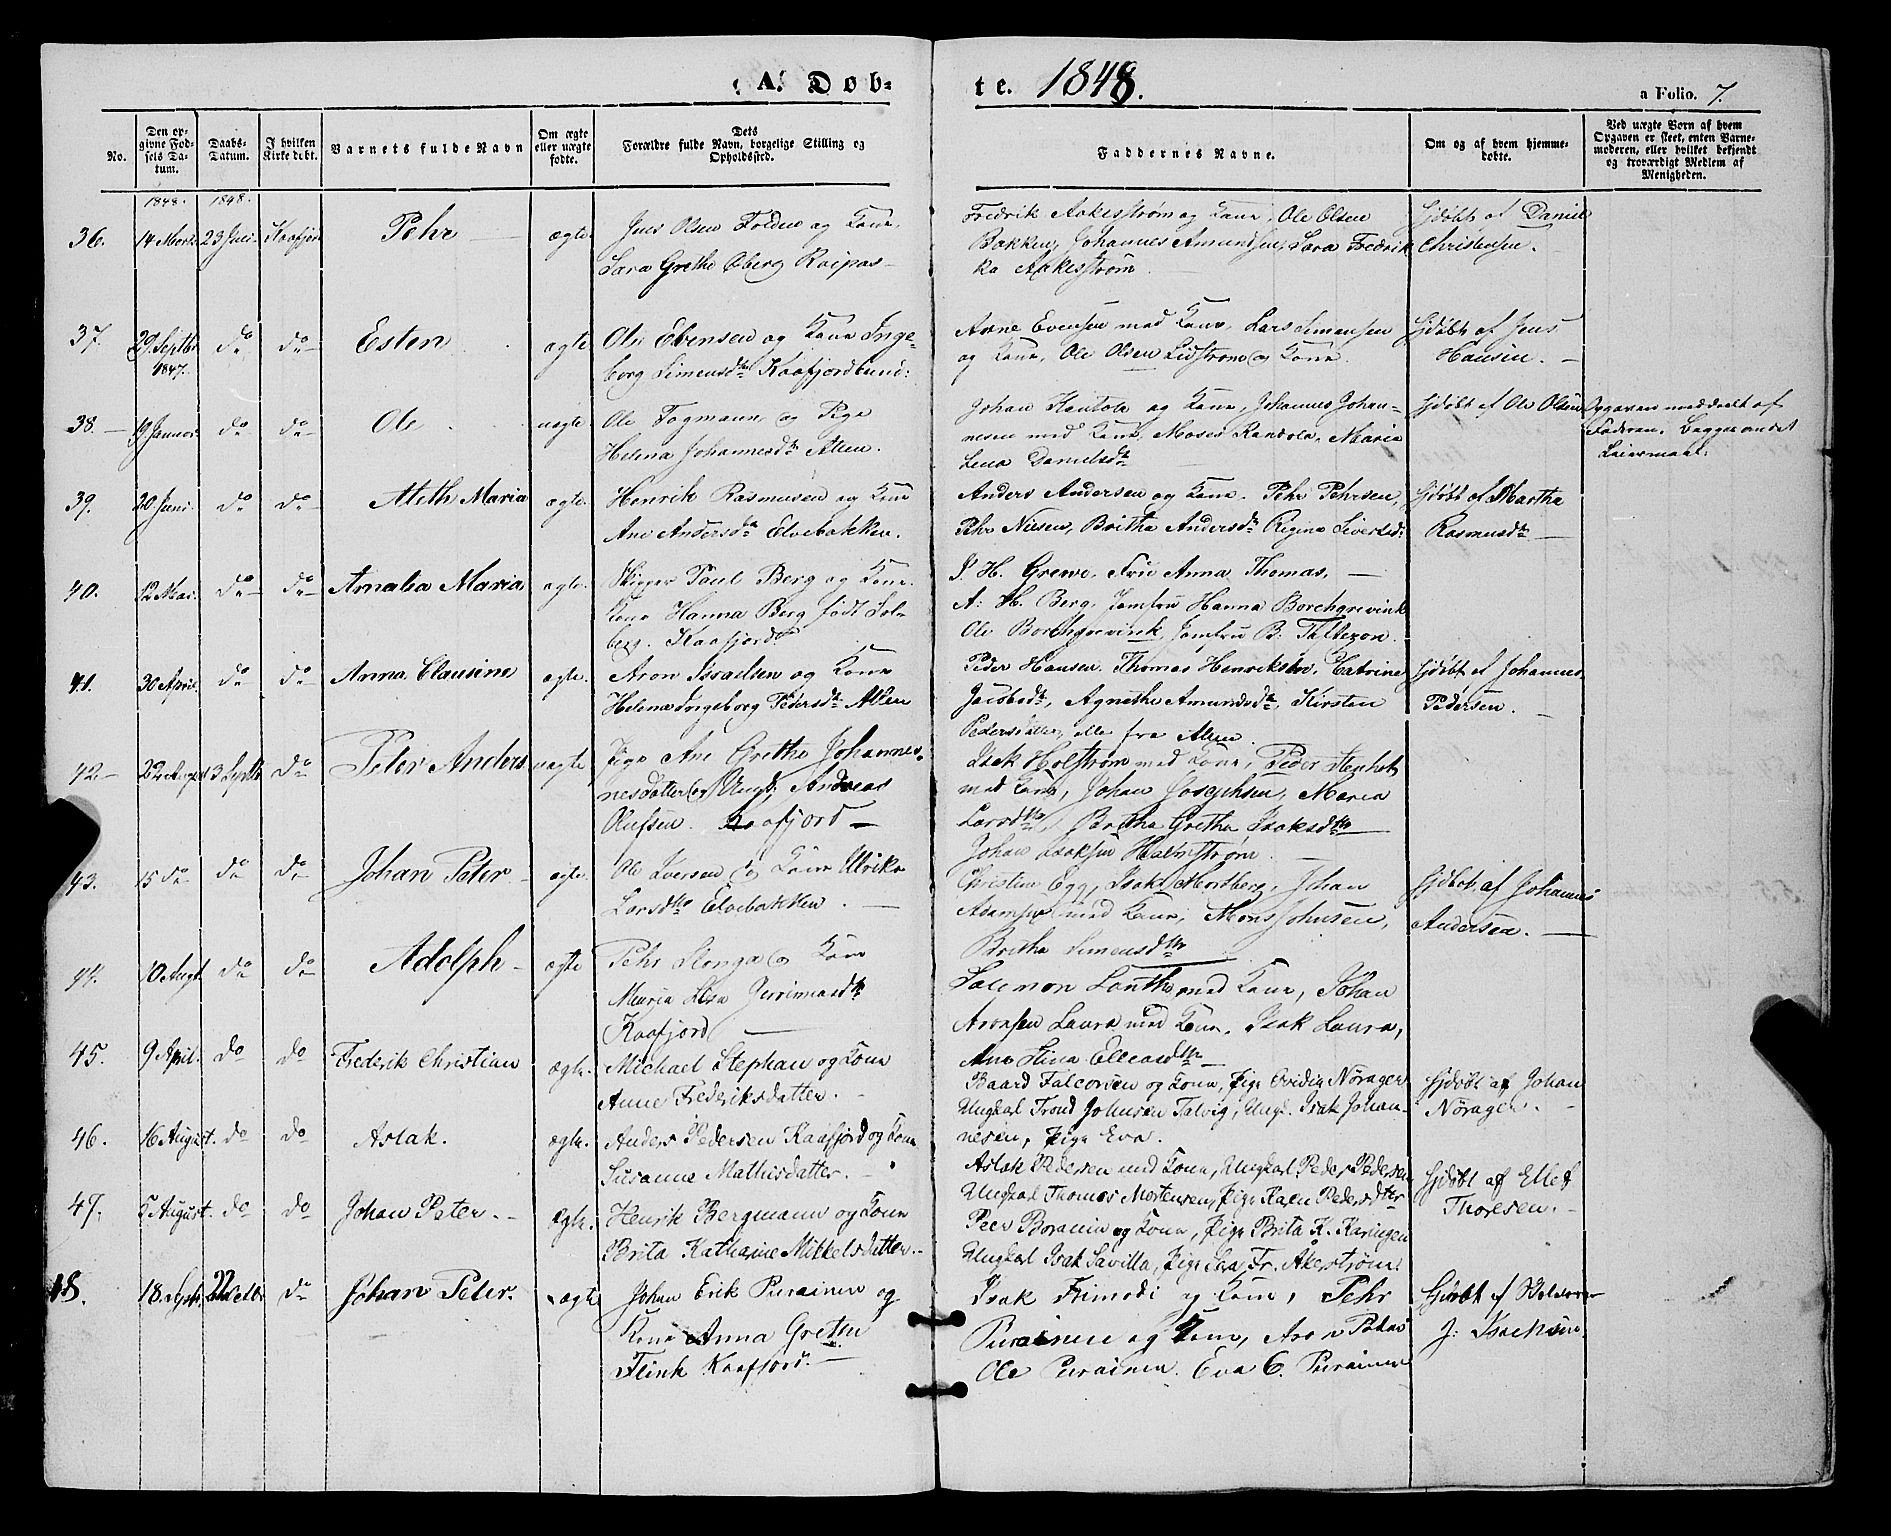 A. Døb-
te. 1848.
a Folio. 7.
No.
Den op-
givne Fød-
sels Da-
tum.
Daabs-
Datum.
I hvilken
Kirke døbt.
Barnets fulde Navn
Om ægte
eller uægte
fødte.
Dets
Forældre fulde Navn, borgelige Stilling og
Opholdssted.
Faddernes Navne.
Om og af hvem hjemme-
døbte.
Ved uægte Børn af hvem
Opgaven er skeet, enten Barne-
moderen, eller hvilket bekjendt
og troværdigt Medlem af
Menigheden.
1848. 1848.
36. 14 Marts 23 Juli Kaafjord Pehr ægte
Jens Olsen Folden og Kone
Sara Grethe Øberg Raipas
Fredrik Aakestrøm og Kone, Ole Olsen
Bakken, Johannes Amundsen, Sara Fredrik
ka Aakestrøm
Hjdøbt af Daniel
Christensen
37. 29 Septbr 1847. do do Esten ægte
Ole Evensen og Kone Inge-
borg Simensdtr Kaafjordbund:
Arne Evensen med Kone, Lars Simensen
og Kone, Ole Olsen Lidstrøm og Kone.
Hjdøbt af Jens
Hansen.
38. 19 Januar do do Ole uægte
Ole Fogmann og Pige
Helena Johannesdtr Alten.
Johan Kentola og Kone, Johannes Johan-
nesen med Kone, Moses Randola, Maria
Lena Danielsdtr
Hjdøbt af Ole Olsen
Opgaven meddeelt af
Faderen. Begges andet
Leiermaal.
39. 20 Juni do do Aleth Maria ægte
Henrik Rasmusen og Kone
Ane Andersdtr Elvebakken.
Anders Andersen og Kone. Pehr Pehrsen,
Pehr Nilsen, Britha Andersdtr Regine Sivertsd:
Hjdøbt af Martha
Rasmusdtr
40. 12 Mai. do do Amalia Maria ægte
Skipper Paul Berg og Kone
Kone Hanna Berg født Sol-
berg. Kaafjord
P. H. Grewe, Fru Anna Thomas,
A: H. Berg, Jomfru Hanna Borchgrevink
Ole Borchgrevink, Jomfru B: Taltezon.
41. 30 April do do Anna Clausine ægte
Aron Israelsen og Kone
Helena Ingeborg Pedersdtr Alten
Peder Hansen, Thomas Henriksen, Catrine
Jacobsdtr, Agnethe Amundsdtr, Kirsten
Pedersdatter, alle fra Alten
Hjdøbt af Johannes
Pedersen.
42. 22 August 3 Septbr do Peter Anders uægte
Pige Ane Grethe Johannes-
nesdatter og Ungk. Andreas
Olufsen. Kaafjord
Isak Holstrøm med Kone, Peder Stenholt
med Kone, Johan Josephsen, Maria
Larsdtr, Britha Gretha Isaksdtr
Johan Isaksen Halmstrøm
43. 15 do do do Johan Peter ægte
Ole Iversen og Kone Ulrike
Larsdtr Elvebakken.
Christian Egg, Isak Mortberg, Johan
Adamsen med Kone, Mons Johnsen,
Britha Simensdtr
Hjdøbt af Johannes
Andersen.
44. 10 Augst do do Adolph ægte
Pehr Stonga og Kone
Maria Lisa Jerrimiasdtr
Kaafjord
Salomon Lantho med Kone, Johan
Aronsen Laura med Kone. Isak Laura,
Ane Stina Elleasdtr
45. 9 April. do do Frederik Christian ægte.
Michael Stephan og Kone
Anne Frederiksdatter.
Baard Falcorsen og Kone, Pige Ovidia Nørager
Ungkarl Trond Johnsen Talvig, Ungk. Isak Johan-
nesen, Pige Eva.
Hjdøbt af Johan
Nørager.
46. 16 August. do do Aslak. ægte.
Anders Pedersen Kaafjord og Kone
Susanne Mathisdatter.
Aslak Pedersen med Kone, Ungkarl Peder Pedersen
Ungkarl Thomas Mortensen, Pige Karen Pedersdtter
Hjdøbt af Ellef
Thoresen.
47. 5 August. do do Johan Peter. ægte.
Henrik Bergmann og Kone
Brita Kathrine Mikkelsdatter.
Peer Boranin og Kone, Pige Brita K. Karingen
Ungkarl Isak Savilla, Pige Sara Fr. Åkerstrøm.
48. 18 Septr 22 do Johan Peter. ægte
Johan Erik Purainen og
Kone Anna Grethe
Flink Kaafjord.
Isak Frimodi og Kone, Pehr
Purainen og Kone, Aron
Ole Purainen. Eva C. Purainen
Hjdøbt af
J: Isachsen.